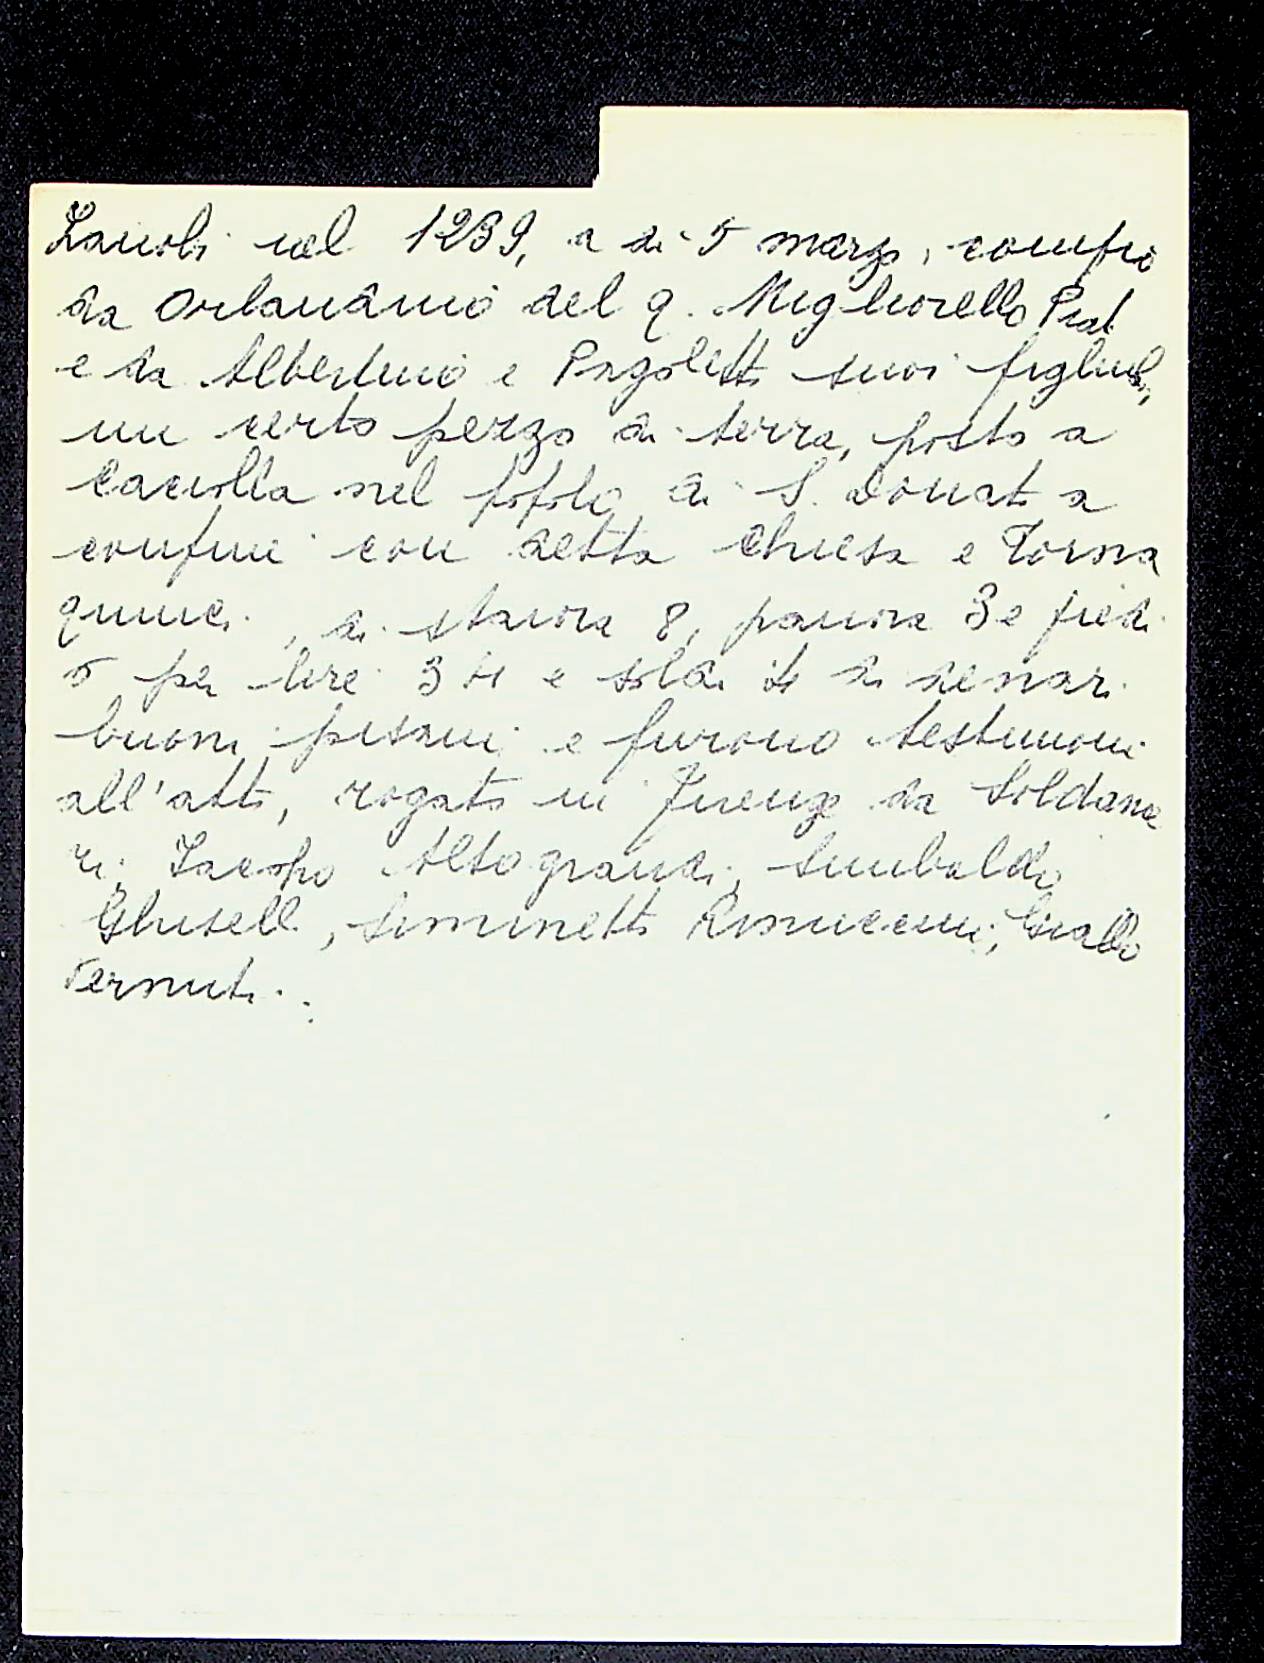 Zanobi nel 1239, a di 5 marzo, comprò
da Orlandino del q. Migliorello Prat.
e da Albertino e Pagoletto suoi figliuoli,
un certo pezzo di terra, posto a
Caciolla nel popolo di S. Donato a
confine con detta Chiesa e Torna
quinci, di staiora 8, panora 3 e piedi
5 per lire 34 e soldi 4 di denari
buoni pisani e furono testimoni
all'atto, rogato in Firenze da Soldane
ri, Iacopo Altograndi, Sinibaldo
Ghiselli, Siminetto Rinuccini, Giallo